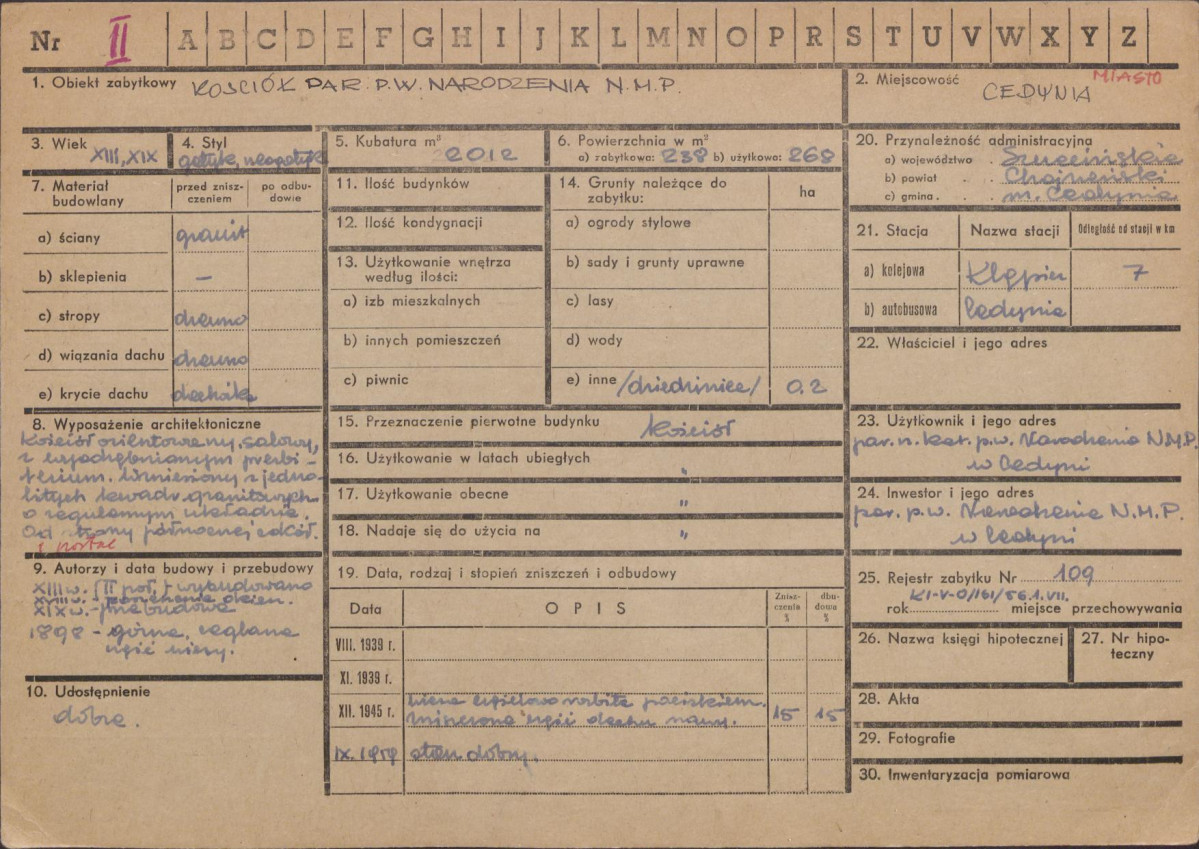 Nr II A B C D E F G H I J K L M N O P R S T U V W X Y Z
1. Obiekt zabytkowy KOSCIÓŁ PAR. P.W. NARODZENIA N.M.P.
2. Miejscowość CEDYNIA MIASTO
3. Wiek XIII, XIX
4. Styl gotyk, neogotyk
5. Kubatura m³ 2012
6. Powierzchnia w m²
a) zabytkowa: 238 b) użytkowa: 268
20. Przynależność administracyjna
a) województwo Szczecińskie
b) powiat Chojneński
c) gmina m. Cedynia
7. Materiał budowlany
przed zniszczeniem
po odbudowie
a) ściany granit
b) sklepienia —
c) stropy drewno
d) wiązania dachu drewno
e) krycie dachu dachówk
11. Ilość budynków
12. Ilość kondygnacji
13. Użytkowanie wnętrza
według ilości:
a) izb mieszkalnych
b) innych pomieszczeń
c) piwnic
14. Grunty należące do
zabytku:
ha
a) ogrody stylowe
b) sady i grunty uprawne
c) lasy
d) wody
e) inne /dziedziniec/ 0.2
21. Stacja Nazwa stacji Odległość od stacji w km
a) kolejowa Klępicz 7
b) autobusowa Cedynia
22. Właściciel i jego adres
8. Wyposażenie architektoniczne
Kościół orientowany, salowy,
z wyodrębnionym prezbi-
terium. Wzniesiony z jedno-
litych kwadr. granitowych
o regularnym układzie.
Od strony północnej
i portal
15. Przeznaczenie pierwotne budynku kościół
16. Użytkowanie w latach ubiegłych "
17. Użytkowanie obecne "
18. Nadaje się do użycia na "
23. Użytkownik i jego adres
par. rz. kat. p.w. Narodzenia N.M.P.
w Cedyni
24. Inwestor i jego adres
par. p.w. Narodzenia N.M.P.
w Cedyni
9. Autorzy i data budowy i przebudowy
XIII w. (II poł.) wybudowano
XVIII w. - poszerzenie okien.
XIX w. - przebudowa
1898 - górna, ceglana
część wieży.
10. Udostępnienie
dobre.
19. Data, rodzaj i stopień zniszczeń i odbudowy
Data OPIS Zniszczenia % dbudowa %
VIII. 1939 r.
XI. 1939 r.
XII. 1945 r. wieża częściowo rozbita pociskiem.
zniszczona część dachu nawy. 15 15
IX. 1959 stan dobry.
25. Rejestr zabytku Nr 109
KI-V-0/161/56.1.VII.
rok miejsce przechowywania
26. Nazwa księgi hipotecznej
27. Nr hipo-
teczny
28. Akta
29. Fotografie
30. Inwentaryzacja pomiarowa